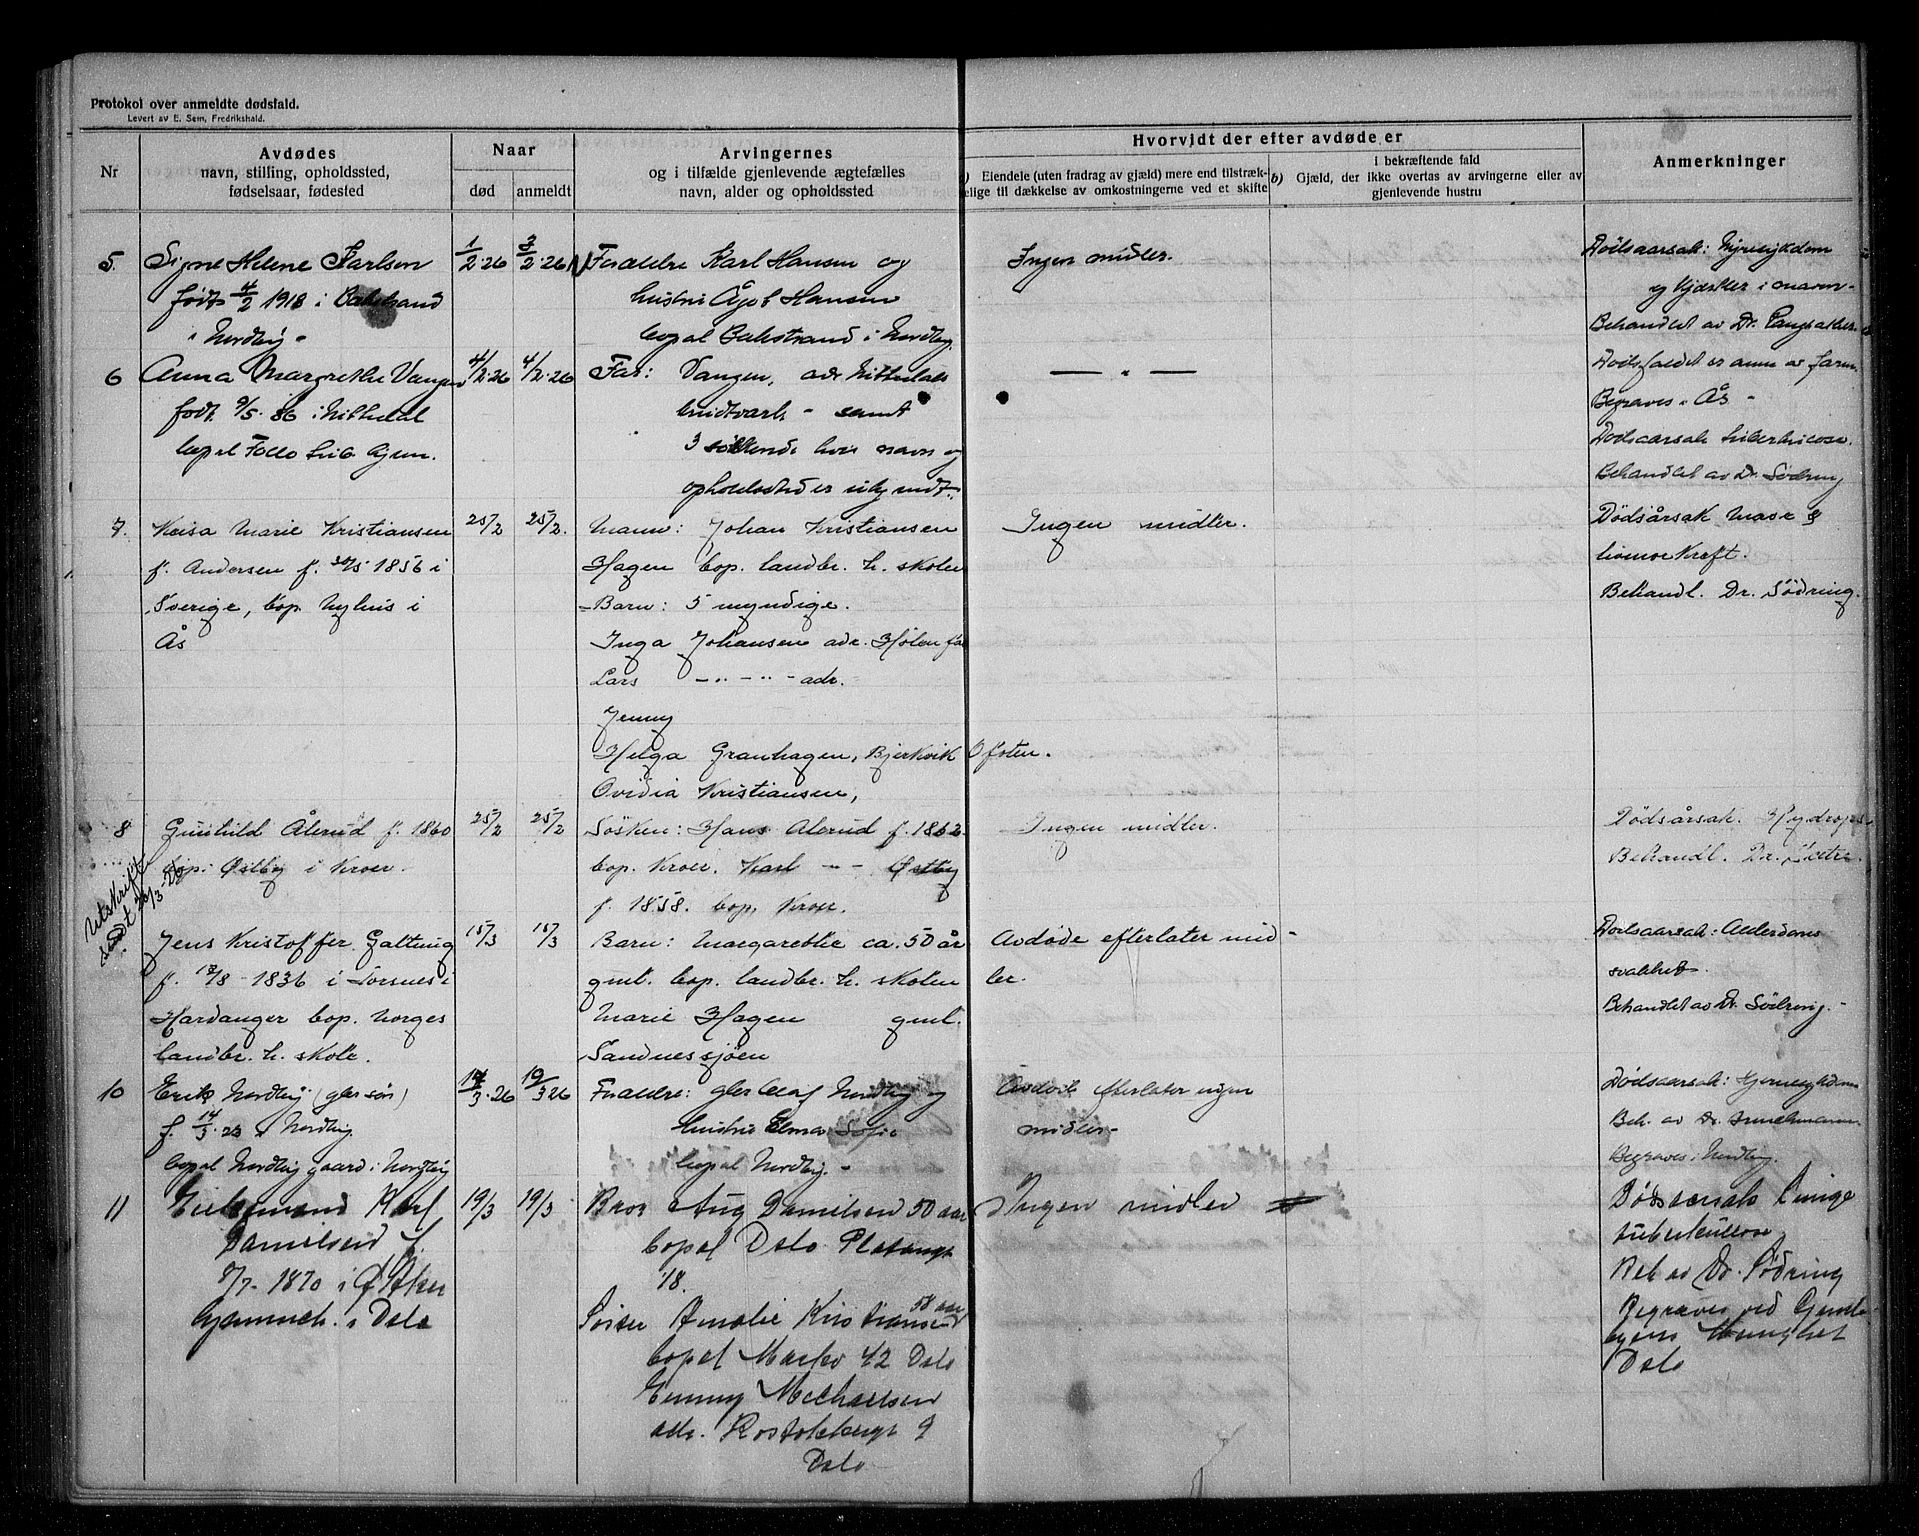 Protokol over anmeldte dødsfald.
Levert av E. Sem, Fredrikshald.
Nr
Avdødes
navn, stilling, opholdssted,
fødselsaar, fødested
Naar
død
anmeldt
Arvingernes
og i tilfælde gjenlevende ægtefælles
navn, alder og opholdssted
Hvorvidt der efter avdøde er
) Eiendele (uten fradrag av gjæld) mere end tilstræk-
elige til dækkelse av omkostningerne ved et skifte
i bekræftende fald
b) Gjæld, der ikke overtas av arvingerne eller av
gjenlevende hustru
Anmerkninger
5.
Signe Helene Karlsen
født 4/2 1918 i
i Nordby -
1/2.26
3/2.26
Foreldre Karl Hansen og
hustru Hansen
bopæl i Nordby.
Ingen midler.
Dødsaarsak: Nyresykdom
Behandlet av Dr.
6
Anna Margrethe Vangen
født 9/5.86 i Nittedal
bopæl Follo Gjem.
4/2.26
4/2.26
Far: Vangen, adr Nittedals
- samt
3 søskende hvis navn og
opholdssted er
— " —
Dødsfaldet er anm av farm
Begraves i Ås -
Dødsaarsak Tuberkulose.
Behandlet av Dr. Södring
7.
Kaisa Marie Kristiansen
f. Andersen f. 30/5 1856 i
Sverige, bop. Nyhus i
Ås
25/2
25/2.
Mann: Johan Kristiansen
Hagen bop. landbr. h. skolen
- Barn: 5 myndige.
Inga Johansen adr. Hølen
Lars -"- -"- adr.
Jenny
Helga Granhagen, Bjerkvik Ofoten.
Ovidia Kristiansen,
Ingen midler.
Dødsårsak Mave &
Kreft.
Behandl. Dr. Södring.
8
Gunhild Ålerud f. 1860
bop. Østby i Kroer.
25/2
25/2
Søsken: Hans Alerud f. 1862.
bop. Kroer. Karl - - Østby
f. 1858. bop. Kroer.
Ingen midler.
Dødsårsak. Hydrops
Behandl. Dr.
Utskrift
sendt
Jens Kristoffer Galtung
f. 1836 i
Hardanger bop. Norges
landbr. h. skole.
15/3
15/3
Barn: Margarethe ca. 50 år
gml. bop. landbr. h. skolen
Marie Hagen gml.
Sandnessjøen
Avdøde efterlater mid-
ler.
Dødsaarsak: Alderdoms
svakhet.
Behandlet av Dr. Södring.
10
Erik Nordby
f. 14/3.23 i Nordby.
bopæl Nordby gaard i Nordby
3.26
19/3 26
Foreldre: Olaf Nordby og
hustru Elma Sofie
bopæl Nordby. -
Avdøde efterlater ingen
midler-
Dødsaarsak: Hjernesykdom
Beh. av Dr.
Begraves i Nordby.
11
Karl
Danielsen f.
8/7-1870 i Ø Aker
i Oslo
19/3
19/3
Bror Aug Danielsen 50 aar
bopæl Oslo
18.
Søster Amalie Kristiansen 58 aar
bopæl Markv 42 Oslo
Emmy Michaelsen
adr. 9
Oslo
Ingen midler
Dødsaarsak Lunge
tuberkulose
Beh av Dr. Södring
Begraves ved
Oslo